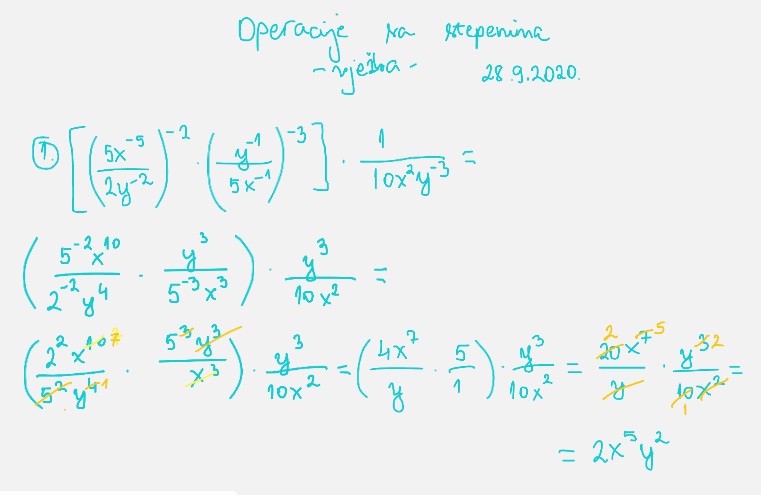 Operacije sa stepenima
-vježba- 28.9.2020.
1. [(5x⁻⁵/2y⁻²)⁻² · (y⁻¹/5x⁻¹)⁻³] · 1/10x²y⁻³ =
(5⁻²x¹⁰/2⁻²y⁴ · y³/5⁻³x³) · y³/10x² =
(2²x¹⁰ ⁷/5²y⁴ ¹ · 5³y³/x³) · y³/10x² = (4x⁷/y · 5/1) · y³/10x² = 2 20x⁷ ⁵/y · y³ ²/10x² 1 =
= 2x⁵y²